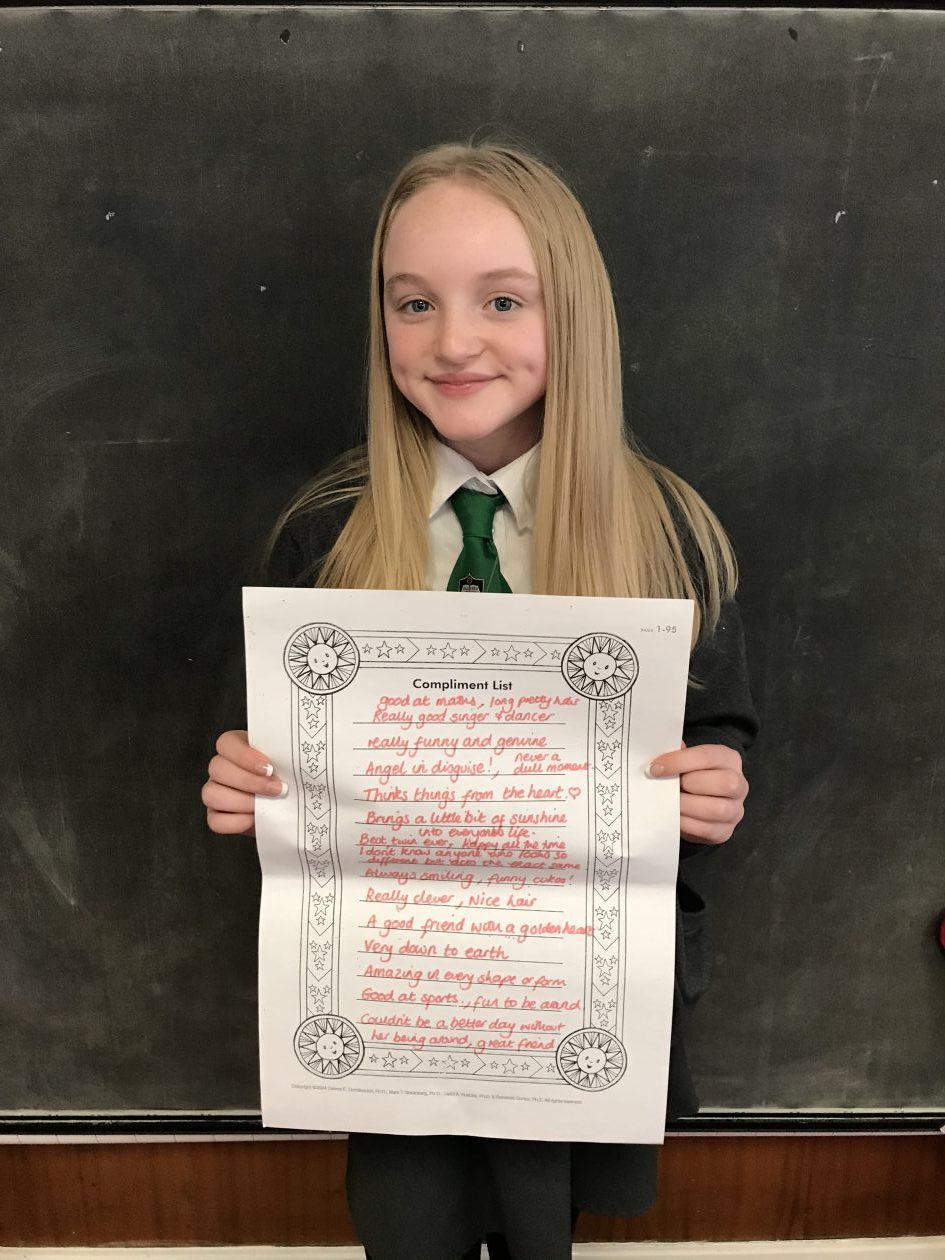 PAGE 1-95
Compliment List
good at maths, long pretty hair
Really good singer + dancer
really funny and genuine
never a
Angel in disguise!, dull moment
Thinks things from the heart ♡
Brings a little bit of sunshine
into everyones life.
Best twin ever, Happy all the time
I don't know anyone who looks so
different but acts the exact same
Always smiling, funny
Really clever, Nice hair
A good friend with a golden heart
Very down to earth
Amazing in every shape or form
Good at sports, fun to be around
Couldn't be a better day without
her being around, great friend
All rights reserved.